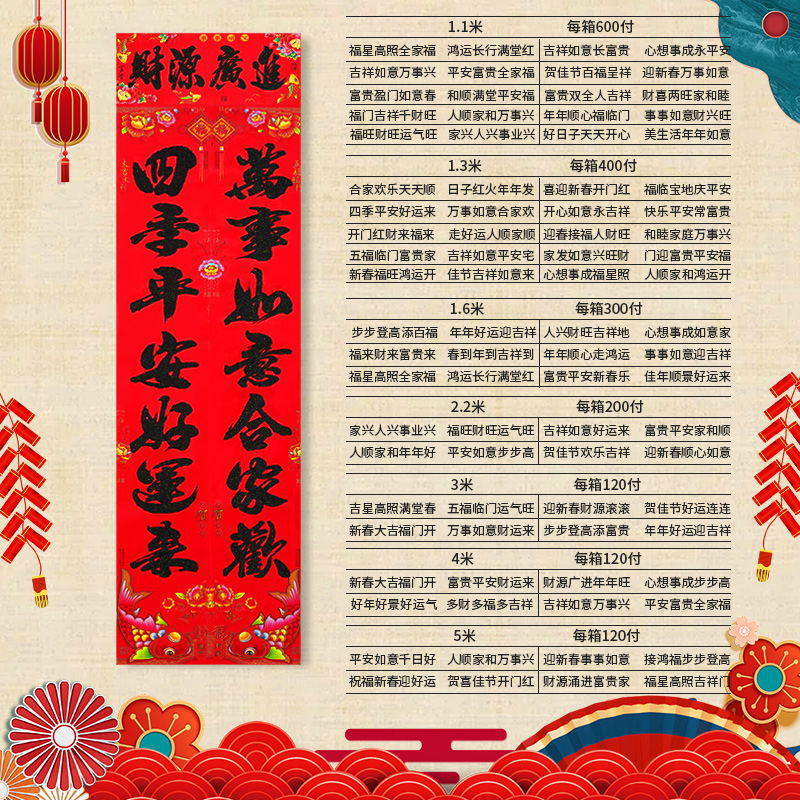 財源廣進
萬事如意合家歡
四季平安好運來
1.1米 每箱600付
福星高照全家福 鸿运长行满堂红 吉祥如意长富贵 心想事成永平安
吉祥如意万事兴 平安富贵全家福 贺佳节百福呈祥 迎新春万事如意
富贵盈门如意春 和顺满堂平安福 富贵双全人吉祥 财喜两旺家和睦
福门吉祥千财旺 人顺家和万事兴 年年顺心福临门 事事如意财兴旺
福旺财旺运气旺 家兴人兴事业兴 好日子天天开心 美生活年年如意
1.3米 每箱400付
合家欢乐天天顺 日子红火年年发 喜迎新春开门红 福临宝地庆平安
四季平安好运来 万事如意合家欢 开心如意永吉祥 快乐平安常富贵
开门红财来福来 走好运人顺家顺 迎春接福人财旺 和睦家庭万事兴
五福临门富贵家 吉祥如意平安宅 家发如意兴旺财 门迎富贵平安福
新春福旺鸿运开 佳节吉祥如意来 心想事成福星照 人顺家和鸿运开
1.6米 每箱300付
步步登高添百福 年年好运迎吉祥 人兴财旺吉祥地 心想事成如意家
福来财来富贵来 春到年到吉祥到 年年顺心走鸿运 事事如意迎吉祥
福星高照全家福 鸿运长行满堂红 富贵平安新春乐 佳年顺景好运来
2.2米 每箱200付
家兴人兴事业兴 福旺财旺运气旺 吉祥如意好运来 富贵平安家和顺
人顺家和年年好 平安如意步步高 贺佳节欢乐吉祥 迎新春顺心如意
3米 每箱120付
吉星高照满堂春 五福临门运气旺 迎新春财源滚滚 贺佳节好运连连
新春大吉福门开 万事如意财运来 步步登高添富贵 年年好运迎吉祥
4米 每箱120付
新春大吉福门开 富贵平安财运来 财源广进年年旺 心想事成步步高
好年好景好运气 多财多福多吉祥 吉祥如意万事兴 平安富贵全家福
5米 每箱120付
平安如意千日好 人顺家和万事兴 迎新春事事如意 接鸿福步步登高
祝福新春迎好运 贺喜佳节开门红 财源涌进富贵家 福星高照吉祥门